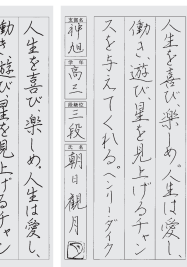 人生を喜び、楽しめ。人生は愛し、
働き、遊び、星を見上げるチャン
スを与えてくれる。ヘンリー・ダイク
支部名 神旭
学年 高三
段級位 三段
氏名 朝日観月
人生を喜び、楽しめ。人生は愛し、
働き、遊び、星を見上げるチャン